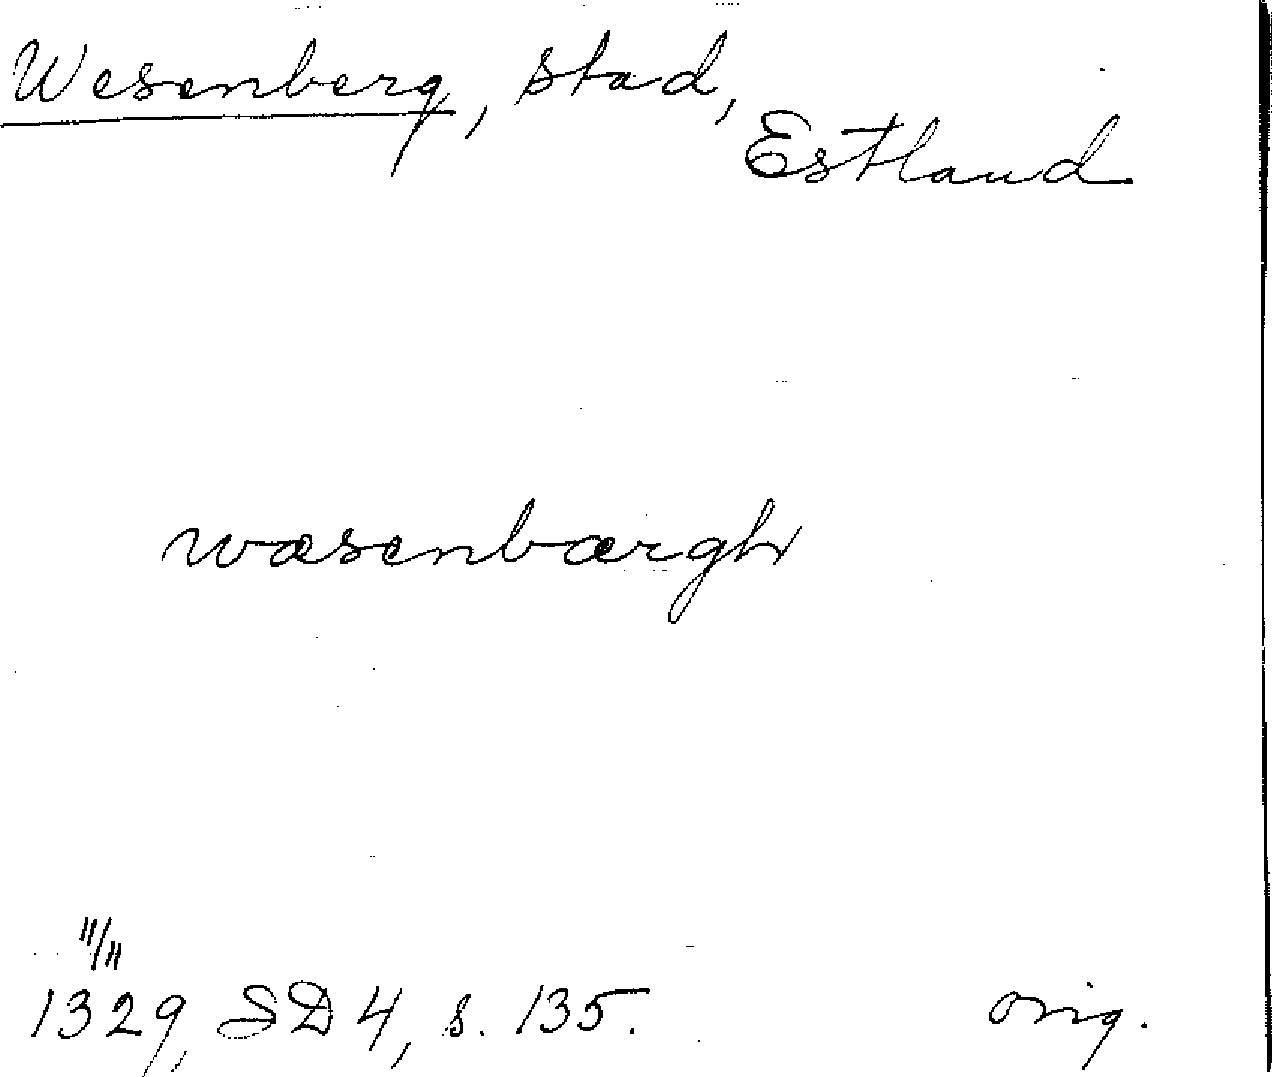 Wesenberg, stad,
Estland
wæsenbærgh
11/11
1329, SD 4, s. 135.
orig.